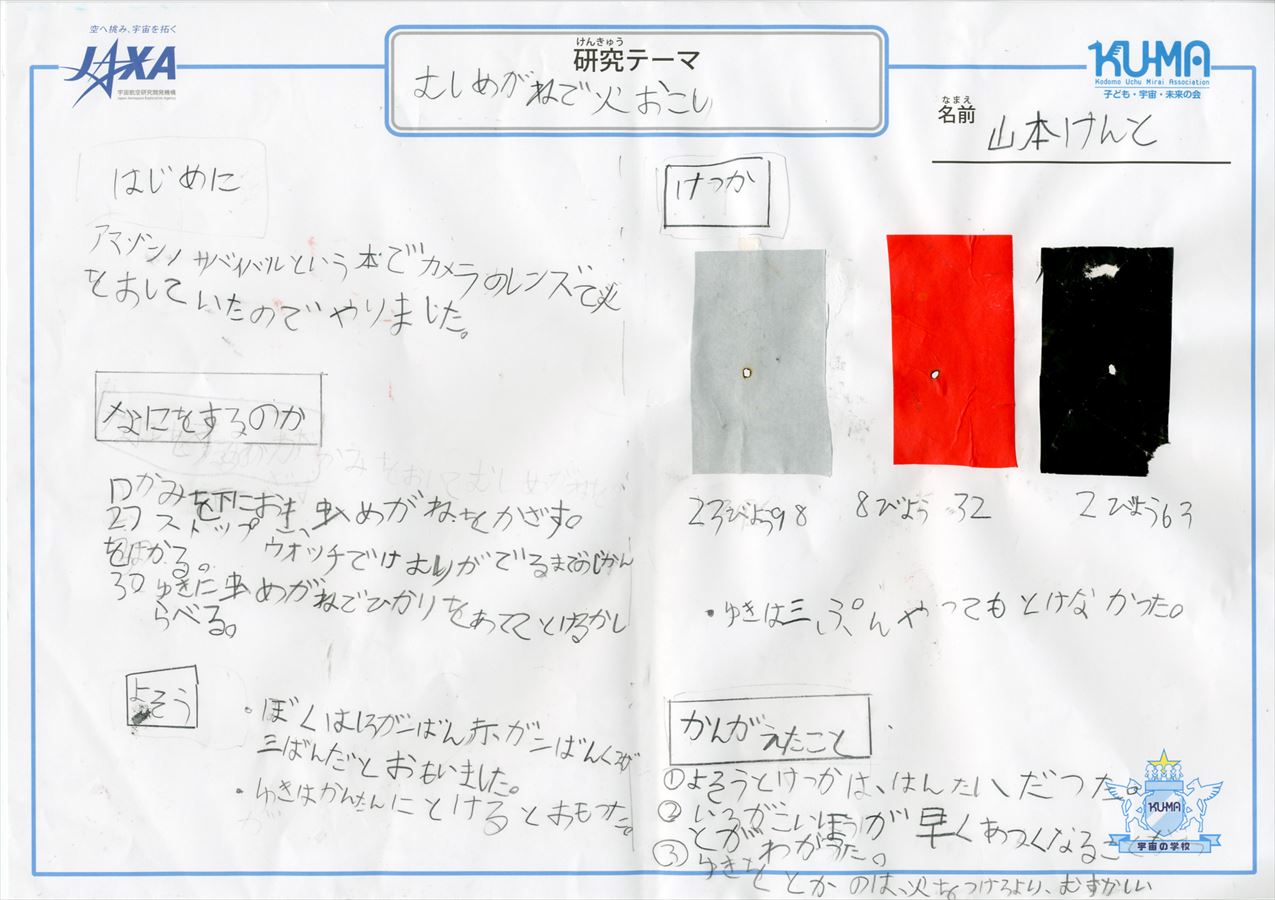 空へ挑み、宇宙を拓く
JAXA
宇宙航空研究開発機構
Japan Aerospace Exploration Agency
けんきゅう
研究テーマ
むしめがねで火おこし
KUMA
Kodomo Uchu Mirai Association
子ども・宇宙・未来の会
なまえ
名前
山本けんと
はじめに
アマゾンノサバイバルという本でカメラのレンズで火
をおしていたのでやりました。
なにをするのか
1つかみを下におき虫めがねをかざす。
2つストップ
ウォッチでけむりがでるまでのじかん
をはかる。
3つゆきに虫めがねでひかりをあててとけるかし
らべる。
よそう
・ぼくはしろが一ばん赤が二ばんくろが
三ばんだとおもいました。
・ゆきはかんたんにとけるとおもった。
けっか
23びょう98
8びょう32
2びょう63
・ゆきは三ぷんやってもとけなかった。
かんがえたこと
①よそうとけっかは、はんたいだった。
②いろがこいほうが早くあつくなるこ
とがわかった。
③ゆきをとかのは、火をつけるより、むずかしい
KUMA
宇宙の学校